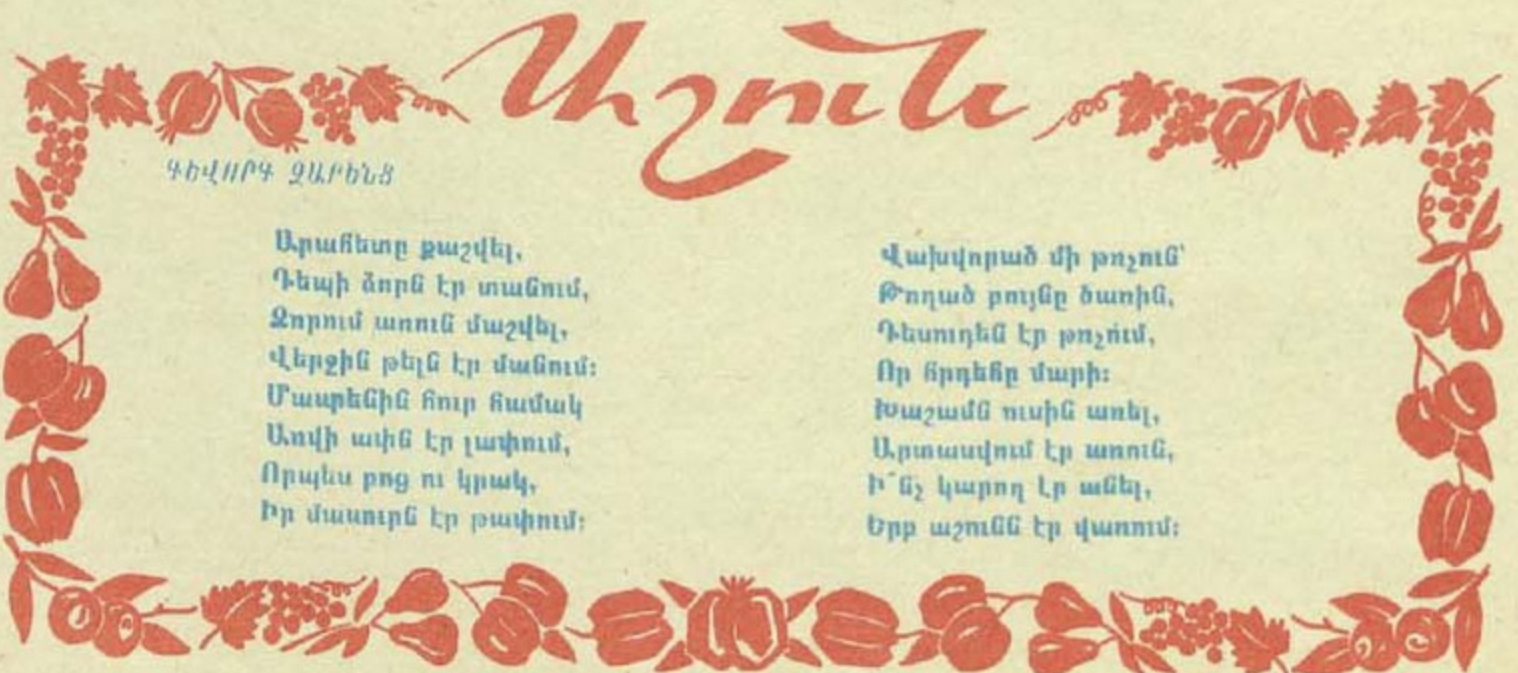 Աշուն
ԳԵՎՈՐԳ ՉԱՐԵՆՑ
Արահետը քաշվել,
Դեպի ձորն էր տանում,
Ձորում առուն մաշվել,
Վերջին թելն էր մանում:
Մասրենին հուր համակ
Առվի ափն էր լափում,
Որպես բոց ու կրակ,
Իր մասուրն էր թափում:
Վախվորած մի թռչուն՝
Թողած բույնը ծառին,
Դեսուդեն էր թռչում,
Որ հրդեհը մարի:
Խաշամն ուսին առել,
Արտասվում էր առուն,
Ի՞նչ կարող էր անել,
Երբ աշունն էր վառում: